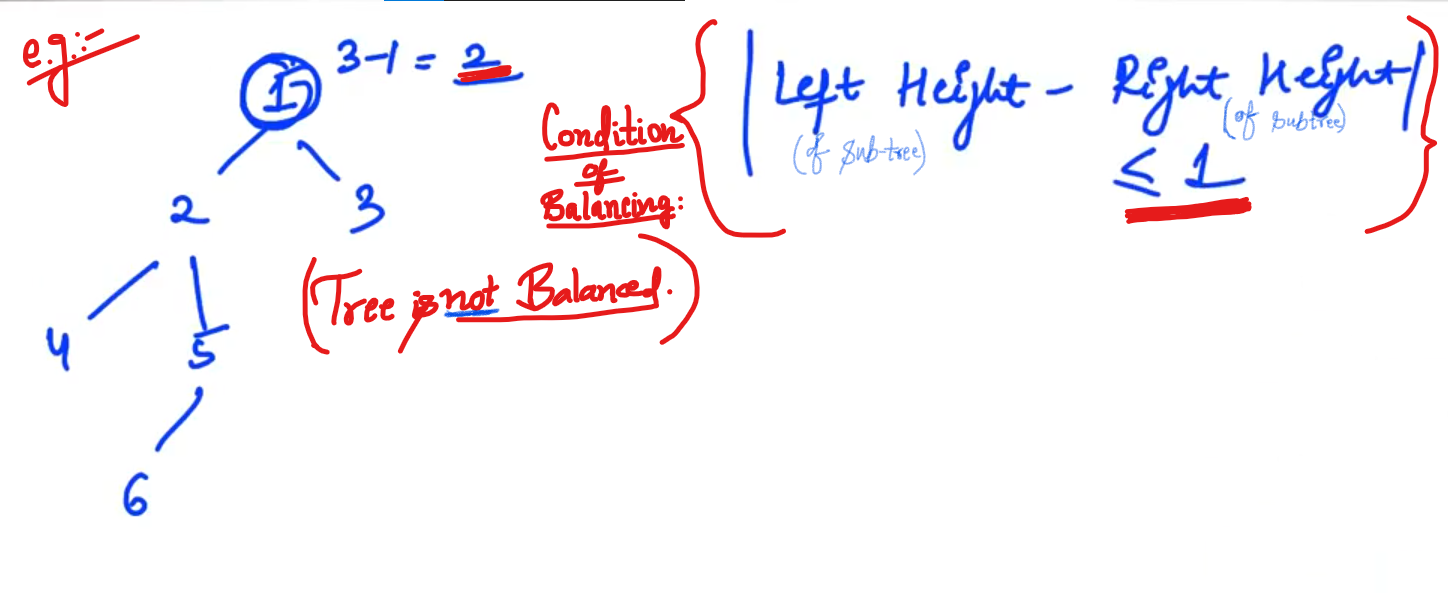 e.g.:-
1
3-1 = 2
2
3
4
5
6
(Tree is not Balanced.)
Condition
of
Balancing:
|Left Height - Right Height|
(of Sub-tree)
(of Subtree)
≤ 1